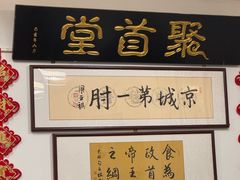 聚首堂
京城第一肘
食為
政首
帝王
之綱